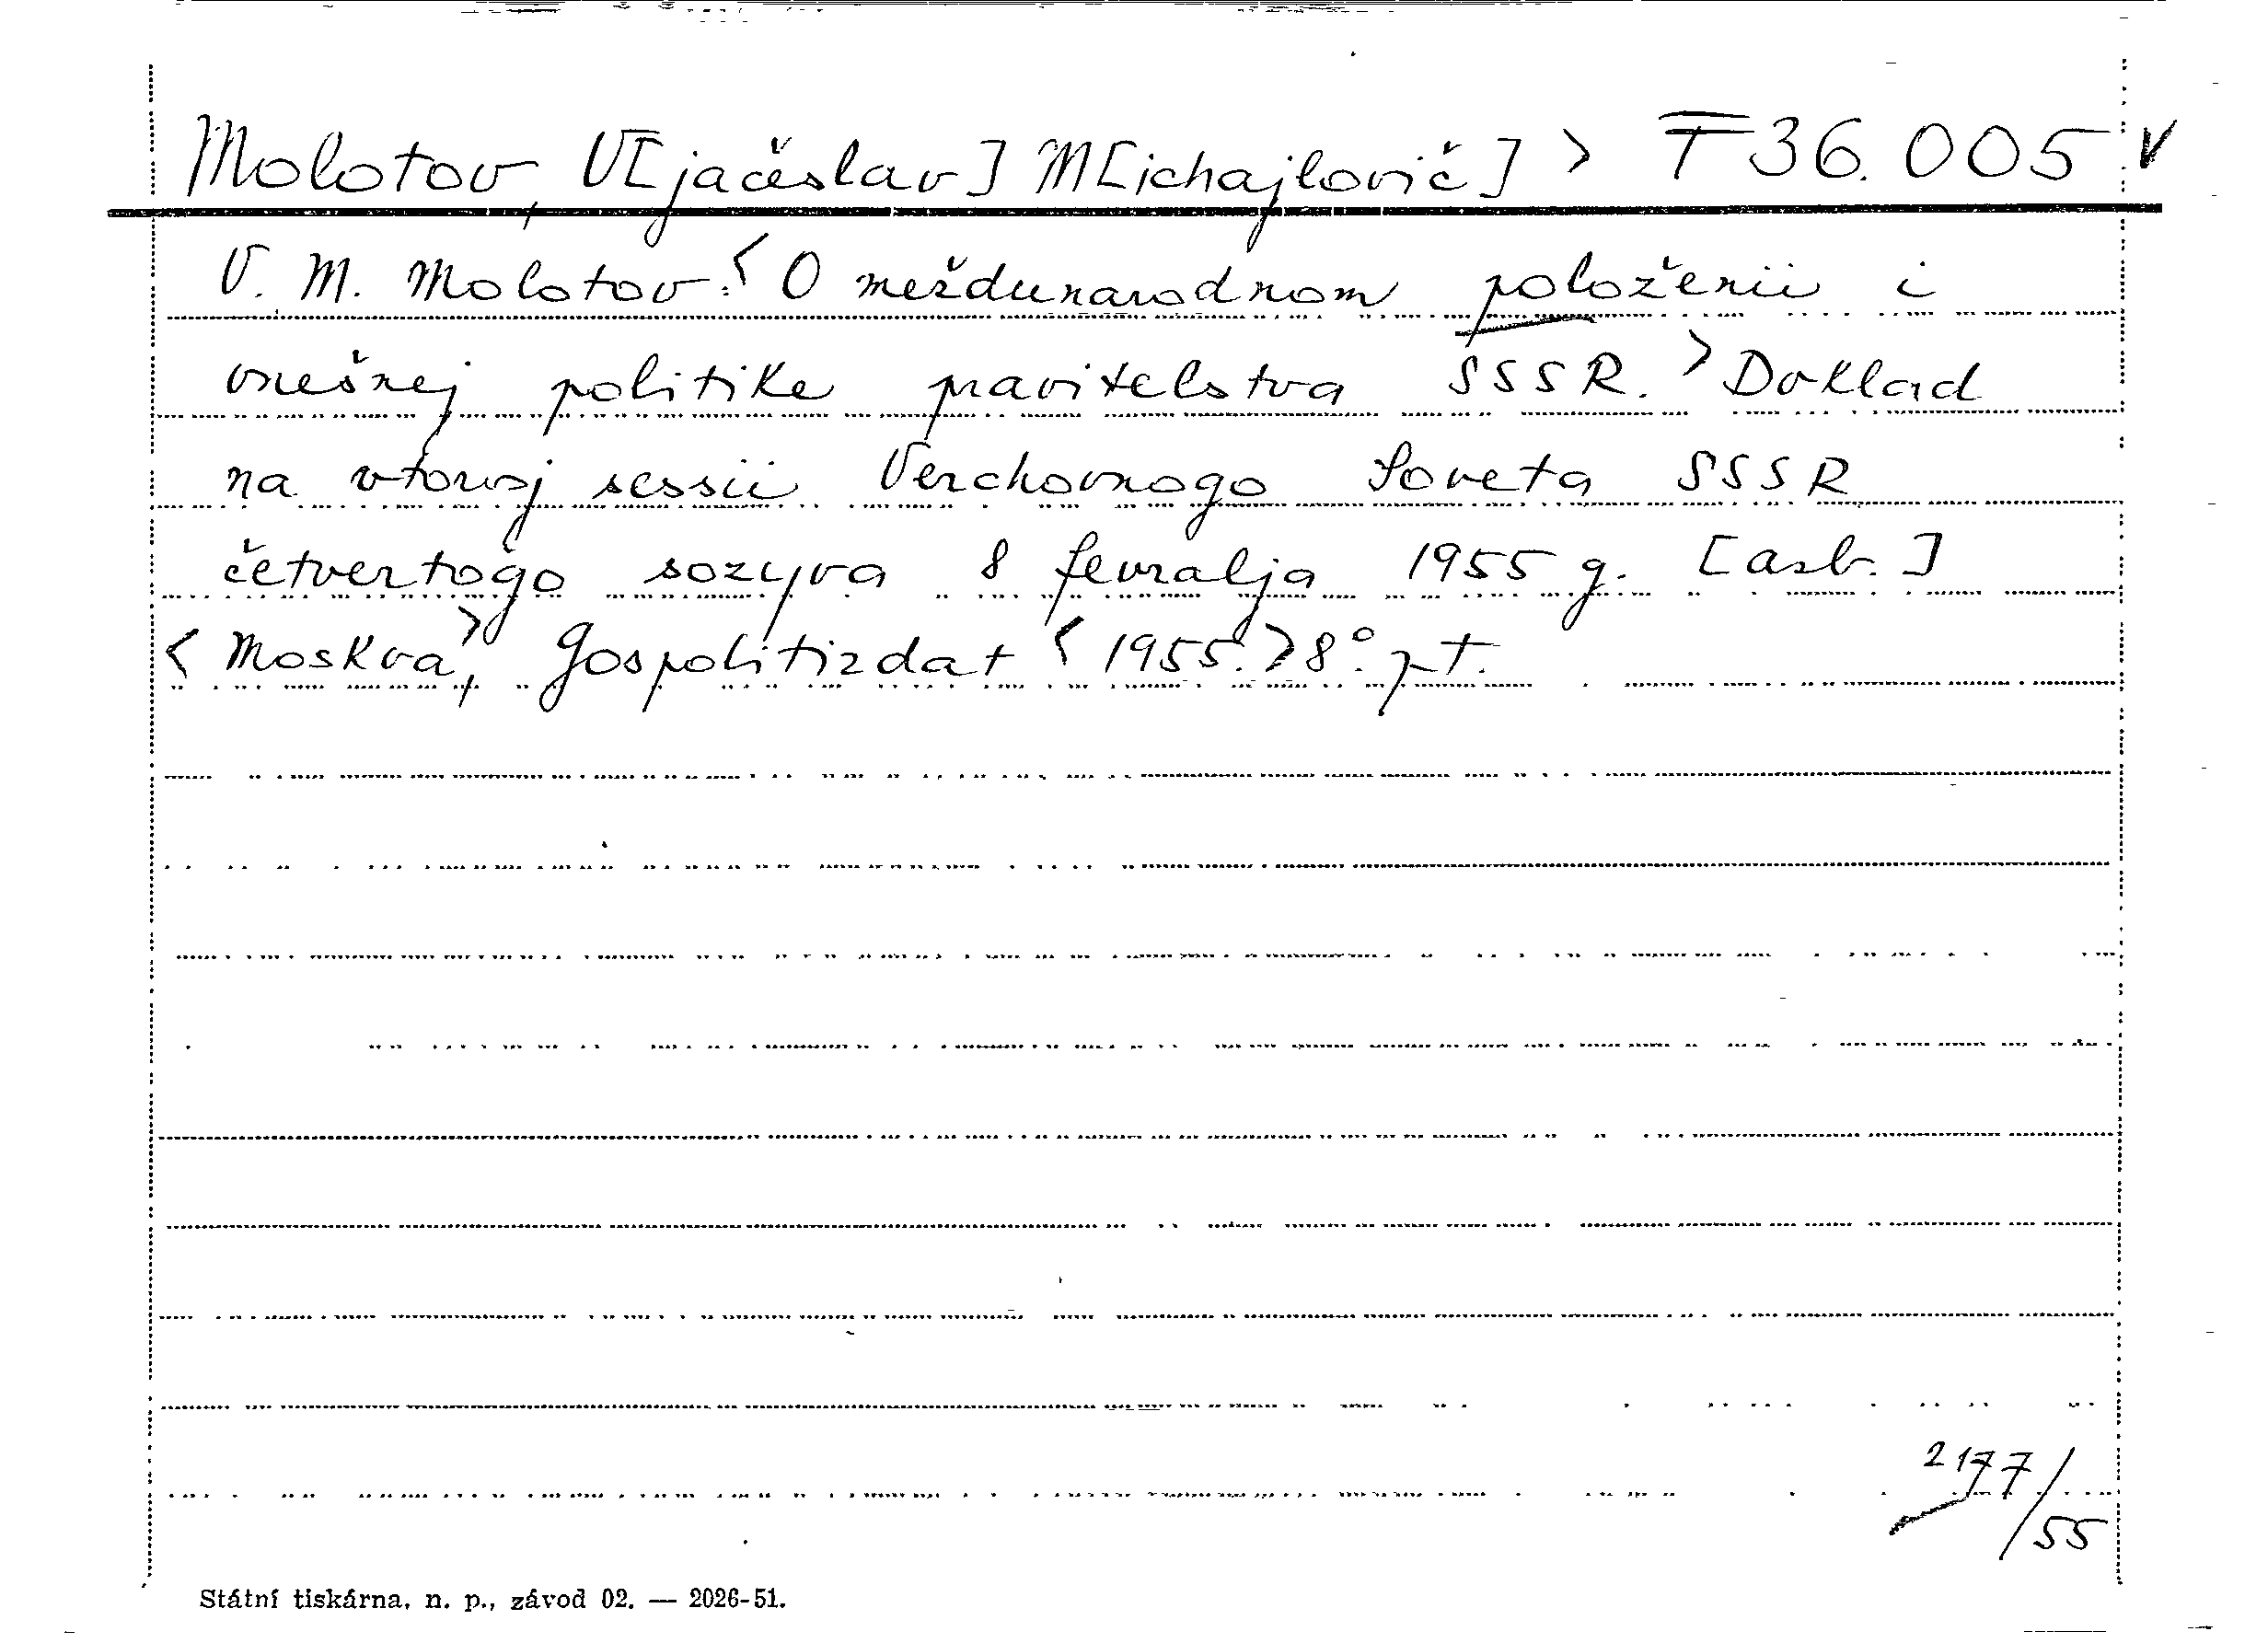 Molotov, V[jačeslav] M[ichajlovič] > T 36.005 v
V. M. Molotov: < O meždunarodnom položenii i
vnešnej politike pravitelstva SSSR. > Doklad
na vtoroj sessii Verchovnogo Soveta SSSR
četvertogo sozyva 8 fevralja 1955 g. [azb.]
< Moskva, > Gospolitizdat < 1955. > 8°. pt.
2177/55
Státní tiskárna, n. p., závod 02. — 2026-51.